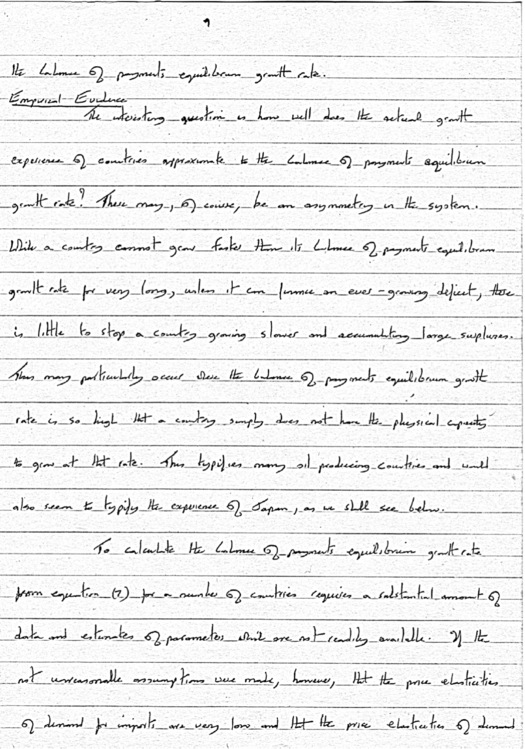 9
the balance of payments equilibrium growth rate.
Empirical Evidence
The interesting question is how well does the actual growth
experience of countries approximate to the balance of payments equilibrium
growth rate? There may, of course, be an asymmetry in the system.
While a country cannot grow faster than its balance of payments equilibrium
growth rate for very long, unless it can finance an ever-growing deficit, there
is little to stop a country growing slower and accumulating large surpluses.
This may particularly occur where the balance of payments equilibrium growth
rate is so high that a country simply does not have the physical capacity
to grow at that rate. This typifies many oil producing countries and would
also seem to typify the experience of Japan, as we shall see below.
To calculate the balance of payments equilibrium growth rate
from equation (7) for a number of countries requires a substantial amount of
data and estimates of parameters which are not readily available. If the
not unreasonable assumptions were made, however, that the price elasticities
of demand for imports are very low and that the price elasticities of demand